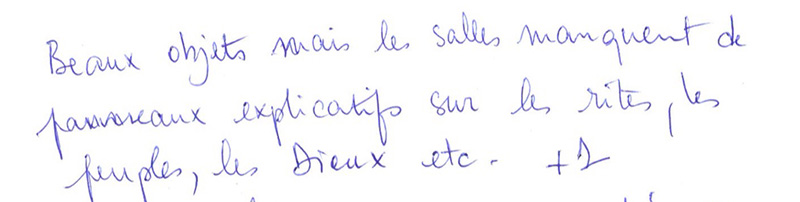 Beaux objets mais les salles manquent de
panneaux explicatifs sur les rites, les
peuples, les Dieux etc. +1